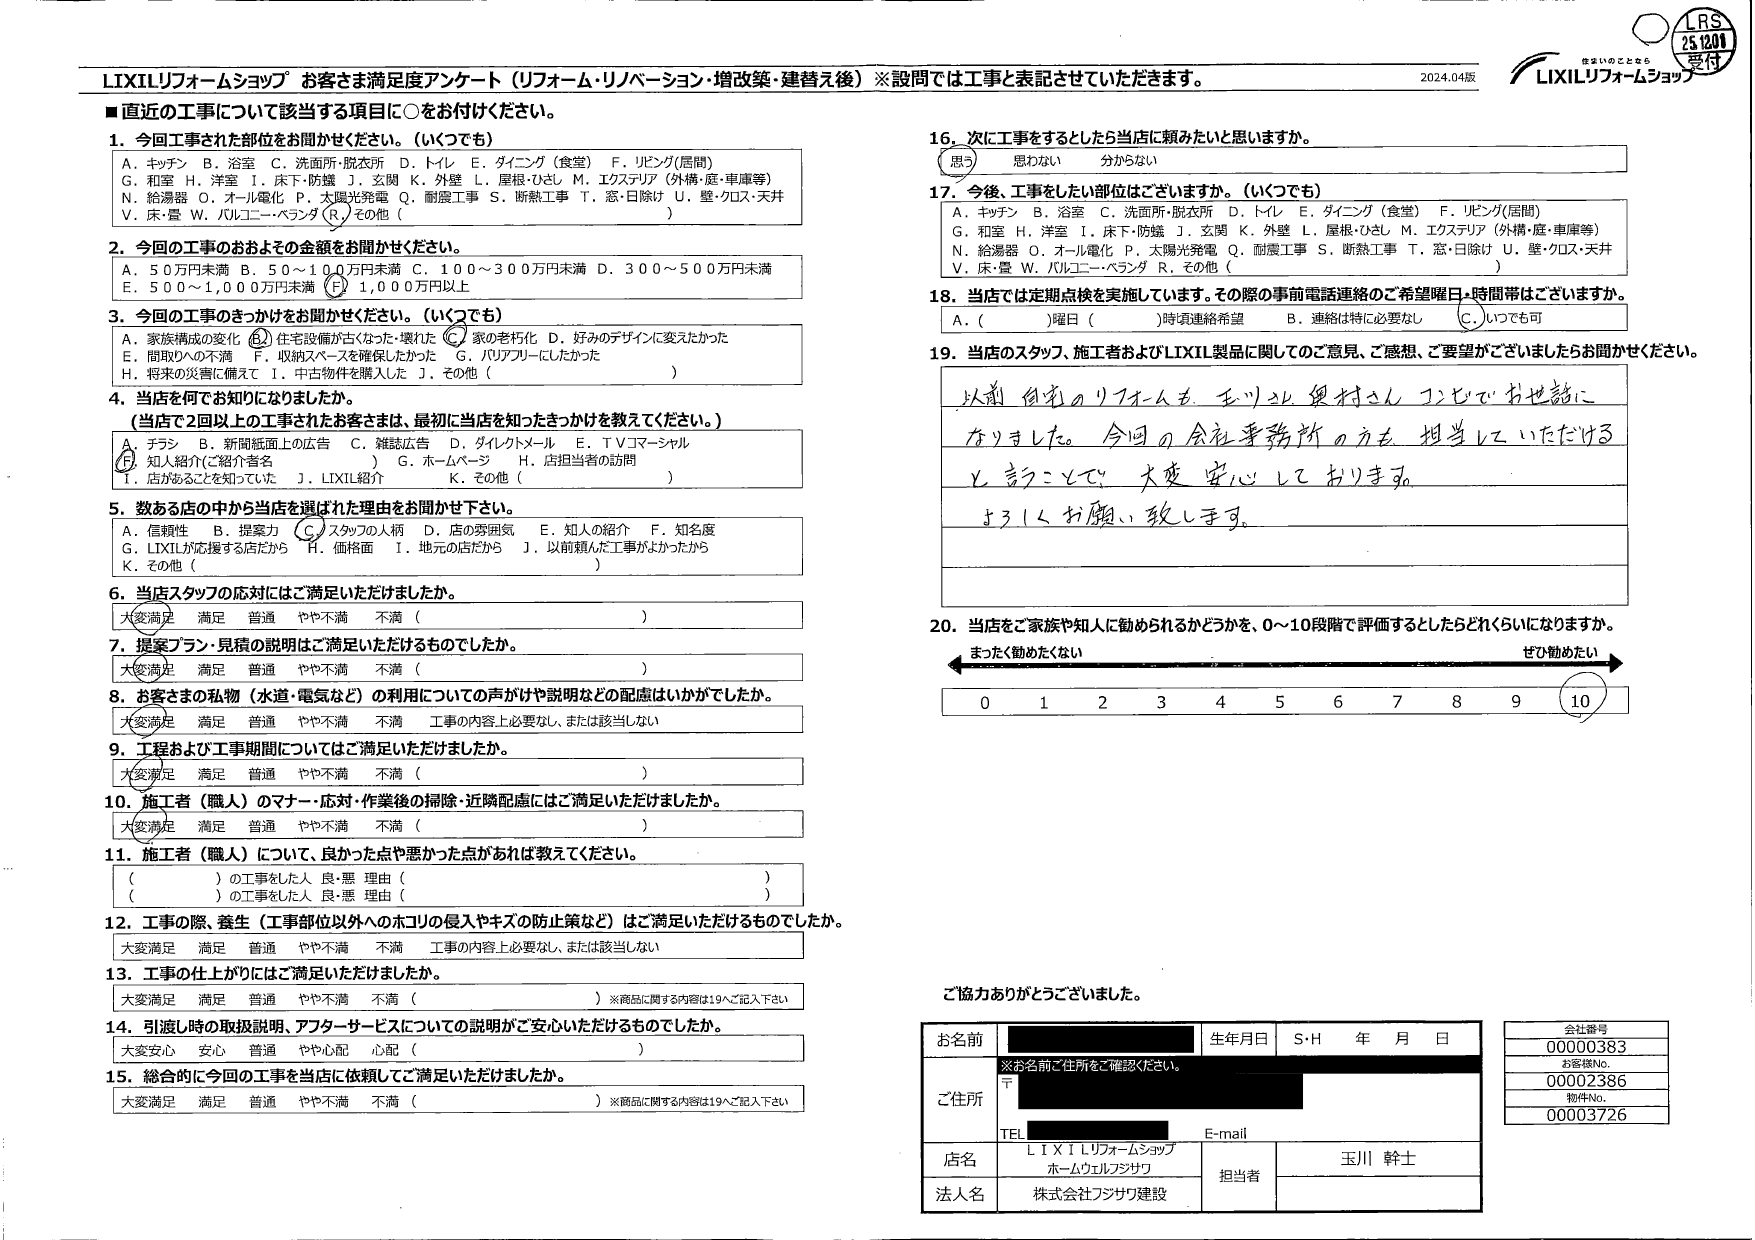 LRS
25.12.01
受付
住まいのことなら
LIXILリフォームショップ
LIXILリフォームショップ お客さま満足度アンケート（リフォーム・リノベーション・増改築・建替え後）※設問では工事と表記させていただきます。
2024.04版
■直近の工事について該当する項目に○をお付けください。
1. 今回工事された部位をお聞かせください。（いくつでも）
A. キッチン B. 浴室 C. 洗面所・脱衣所 D. トイレ E. ダイニング（食堂） F. リビング(居間)
G. 和室 H. 洋室 I. 床下・防蟻 J. 玄関 K. 外壁 L. 屋根・ひさし M. エクステリア（外構・庭・車庫等）
N. 給湯器 O. オール電化 P. 太陽光発電 Q. 耐震工事 S. 断熱工事 T. 窓・日除け U. 壁・クロス・天井
V. 床・畳 W. バルコニー・ベランダ R. その他（ ）
2. 今回の工事のおおよその金額をお聞かせください。
A. ５０万円未満 B. ５０～１００万円未満 C. １００～３００万円未満 D. ３００～５００万円未満
E. ５００～１,０００万円未満 F. １,０００万円以上
3. 今回の工事のきっかけをお聞かせください。（いくつでも）
A. 家族構成の変化 B. 住宅設備が古くなった・壊れた C. 家の老朽化 D. 好みのデザインに変えたかった
E. 間取りへの不満 F. 収納スペースを確保したかった G. バリアフリーにしたかった
H. 将来の災害に備えて I. 中古物件を購入した J. その他（ ）
4. 当店を何でお知りになりましたか。
（当店で2回以上の工事されたお客さまは、最初に当店を知ったきっかけを教えてください。）
A. チラシ B. 新聞紙面上の広告 C. 雑誌広告 D. ダイレクトメール E. ＴＶコマーシャル
F. 知人紹介(ご紹介者名 ） G. ホームページ H. 店担当者の訪問
I. 店があることを知っていた J. LIXIL紹介 K. その他（ ）
5. 数ある店の中から当店を選ばれた理由をお聞かせ下さい。
A. 信頼性 B. 提案力 C. スタッフの人柄 D. 店の雰囲気 E. 知人の紹介 F. 知名度
G. LIXILが応援する店だから H. 価格面 I. 地元の店だから J. 以前頼んだ工事がよかったから
K. その他（ ）
6. 当店スタッフの応対にはご満足いただけましたか。
大変満足 満足 普通 やや不満 不満（ ）
7. 提案プラン・見積の説明はご満足いただけるものでしたか。
大変満足 満足 普通 やや不満 不満（ ）
8. お客さまの私物（水道・電気など）の利用についての声がけや説明などの配慮はいかがでしたか。
大変満足 満足 普通 やや不満 不満 工事の内容上必要なし、または該当しない
9. 工程および工事期間についてはご満足いただけましたか。
大変満足 満足 普通 やや不満 不満（ ）
10. 施工者（職人）のマナー・応対・作業後の掃除・近隣配慮にはご満足いただけましたか。
大変満足 満足 普通 やや不満 不満（ ）
11. 施工者（職人）について、良かった点や悪かった点があれば教えてください。
（ ）の工事をした人 良・悪 理由（ ）
（ ）の工事をした人 良・悪 理由（ ）
12. 工事の際、養生（工事部位以外へのホコリの侵入やキズの防止策など）はご満足いただけるものでしたか。
大変満足 満足 普通 やや不満 不満 工事の内容上必要なし、または該当しない
13. 工事の仕上がりにはご満足いただけましたか。
大変満足 満足 普通 やや不満 不満（ ）※商品に関する内容は19へご記入下さい
14. 引渡し時の取扱説明、アフターサービスについての説明がご安心いただけるものでしたか。
大変安心 安心 普通 やや心配 心配（ ）
15. 総合的に今回の工事を当店に依頼してご満足いただけましたか。
大変満足 満足 普通 やや不満 不満（ ）※商品に関する内容は19へご記入下さい
16. 次に工事をするとしたら当店に頼みたいと思いますか。
思う 思わない 分からない
17. 今後、工事をしたい部位はございますか。（いくつでも）
A. キッチン B. 浴室 C. 洗面所・脱衣所 D. トイレ E. ダイニング（食堂） F. リビング(居間)
G. 和室 H. 洋室 I. 床下・防蟻 J. 玄関 K. 外壁 L. 屋根・ひさし M. エクステリア（外構・庭・車庫等）
N. 給湯器 O. オール電化 P. 太陽光発電 Q. 耐震工事 S. 断熱工事 T. 窓・日除け U. 壁・クロス・天井
V. 床・畳 W. バルコニー・ベランダ R. その他（ ）
18. 当店では定期点検を実施しています。その際の事前電話連絡のご希望曜日・時間帯はございますか。
A.（ )曜日（ )時頃連絡希望 B. 連絡は特に必要なし C. いつでも可
19. 当店のスタッフ、施工者およびLIXIL製品に関してのご意見、ご感想、ご要望がございましたらお聞かせください。
以前 自宅のリフォームも 玉川さん 奥村さん コンビでお世話に
なりました。 今回の会社事務所の方も 担当していただける
と言うことで、大変 安心しております。
よろしくお願い致します。
20. 当店をご家族や知人に勧められるかどうかを、0～10段階で評価するとしたらどれくらいになりますか。
まったく勧めたくない ぜひ勧めたい
0 1 2 3 4 5 6 7 8 9 10
ご協力ありがとうございました。
お名前 生年月日 S・H 年 月 日
※お名前ご住所をご確認ください。
ご住所 〒
TEL E-mail
店名 ＬＩＸＩＬリフォームショップ
ホームウェルフジサワ
担当者 玉川 幹士
法人名 株式会社フジサワ建設
会社番号
00000383
お客様No.
00002386
物件No.
00003726